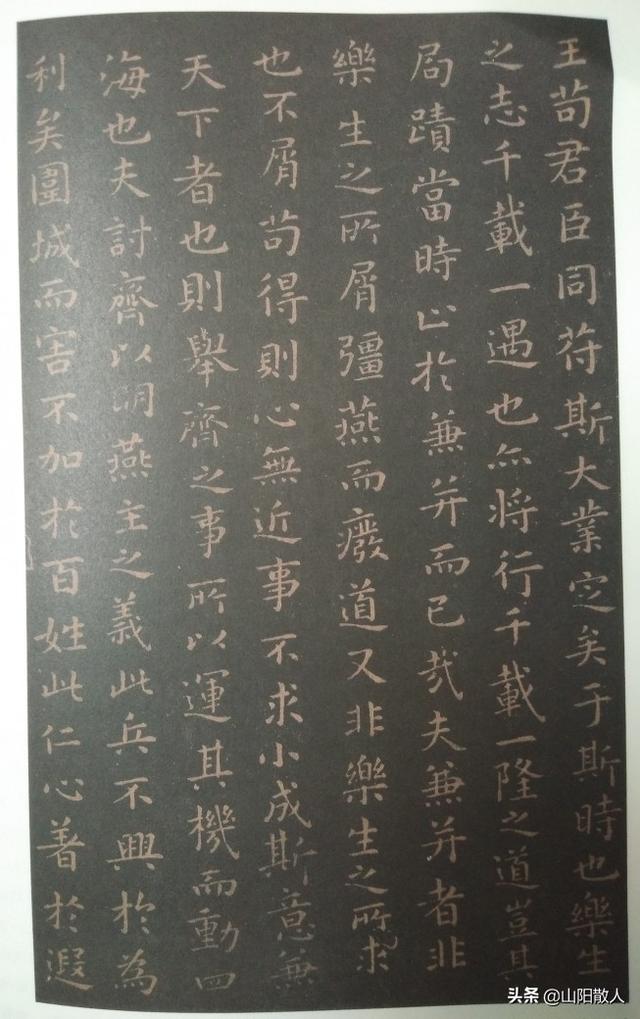 王苟君臣同苻斯大業定矣于斯時也樂生
之志千載一遇也亦將行千載一隆之道豈其
局蹟當時止於兼并而已哉夫兼并者非
樂生之所屑彊燕而廢道又非樂生之所求
也不屑苟得則心無近事不求小成斯意無
天下者也則舉齊之事所以運其機而動四
海也夫討齊以明燕主之義此兵不興於為
利矣圍城而害不加於百姓此仁心著於遐
头条 @山阳散人